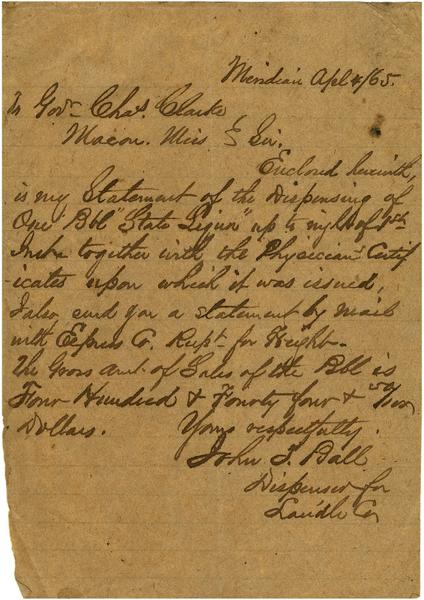 Meridian Apl 4/65.
To Govr Chas. Clarke
Macon. Miss } Sir.
Enclosed herewith,
is my Statement of the Dispensing of
One Bbl "State Liquor" up to night of 1st
Inst. together with the Physician Certif
icates upon which it was issued,
I also send you a statement by mail
with Express Co. Recpt. for Freight.
The Gross amt. of Sales of the Bbl is
Four Hundred & Fourty four & 50/100
Dollars. Yours respectfully.
John T. Ball
Dispenser for
Laud'le Co